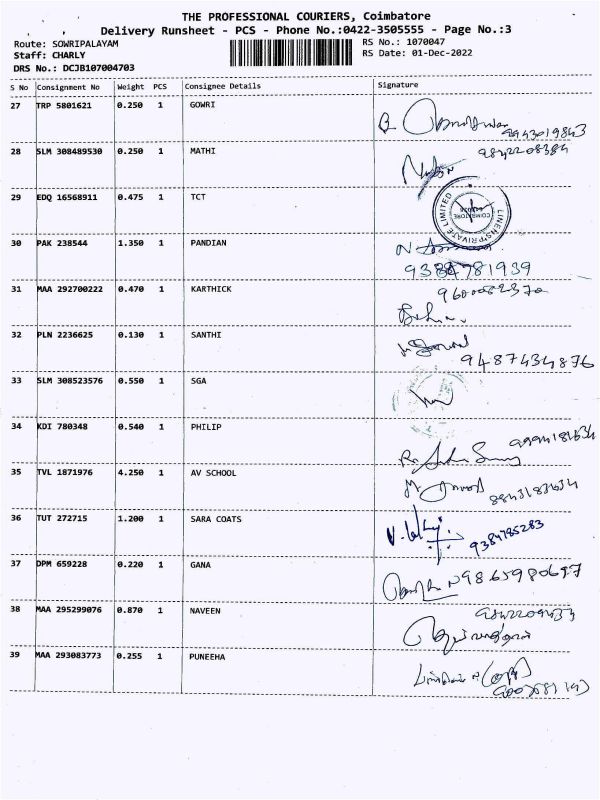 THE PROFESSIONAL COURIERS, Coimbatore
Delivery Runsheet - PCS - Phone No.:0422-3505555 - Page No.:3
Route: SOWRIPALAYAM RS No.: 1070047
Staff: CHARLY RS Date: 01-Dec-2022
DRS No.: DCJB107004703
S No Consignment No Weight PCS Consignee Details Signature
27 TRP 5801621 0.250 1 GOWRI
9943019843
28 SLM 308489530 0.250 1 MATHI 9842208384
29 EDQ 16568911 0.475 1 TCT
LINENS PRIVATE LIMITED
COIMBATORE
30 PAK 238544 1.350 1 PANDIAN
9384781939
31 MAA 292700222 0.470 1 KARTHICK
32 PLN 2236625 0.130 1 SANTHI
9487434876
33 SLM 308523576 0.550 1 SGA
34 KDI 780348 0.540 1 PHILIP
35 TVL 1871976 4.250 1 AV SCHOOL
8843183634
36 TUT 272715 1.200 1 SARA COATS
9384785283
37 DPM 659228 0.220 1 GANA
9865980697
38 MAA 295299076 0.870 1 NAVEEN
39 MAA 293083773 0.255 1 PUNEEHA